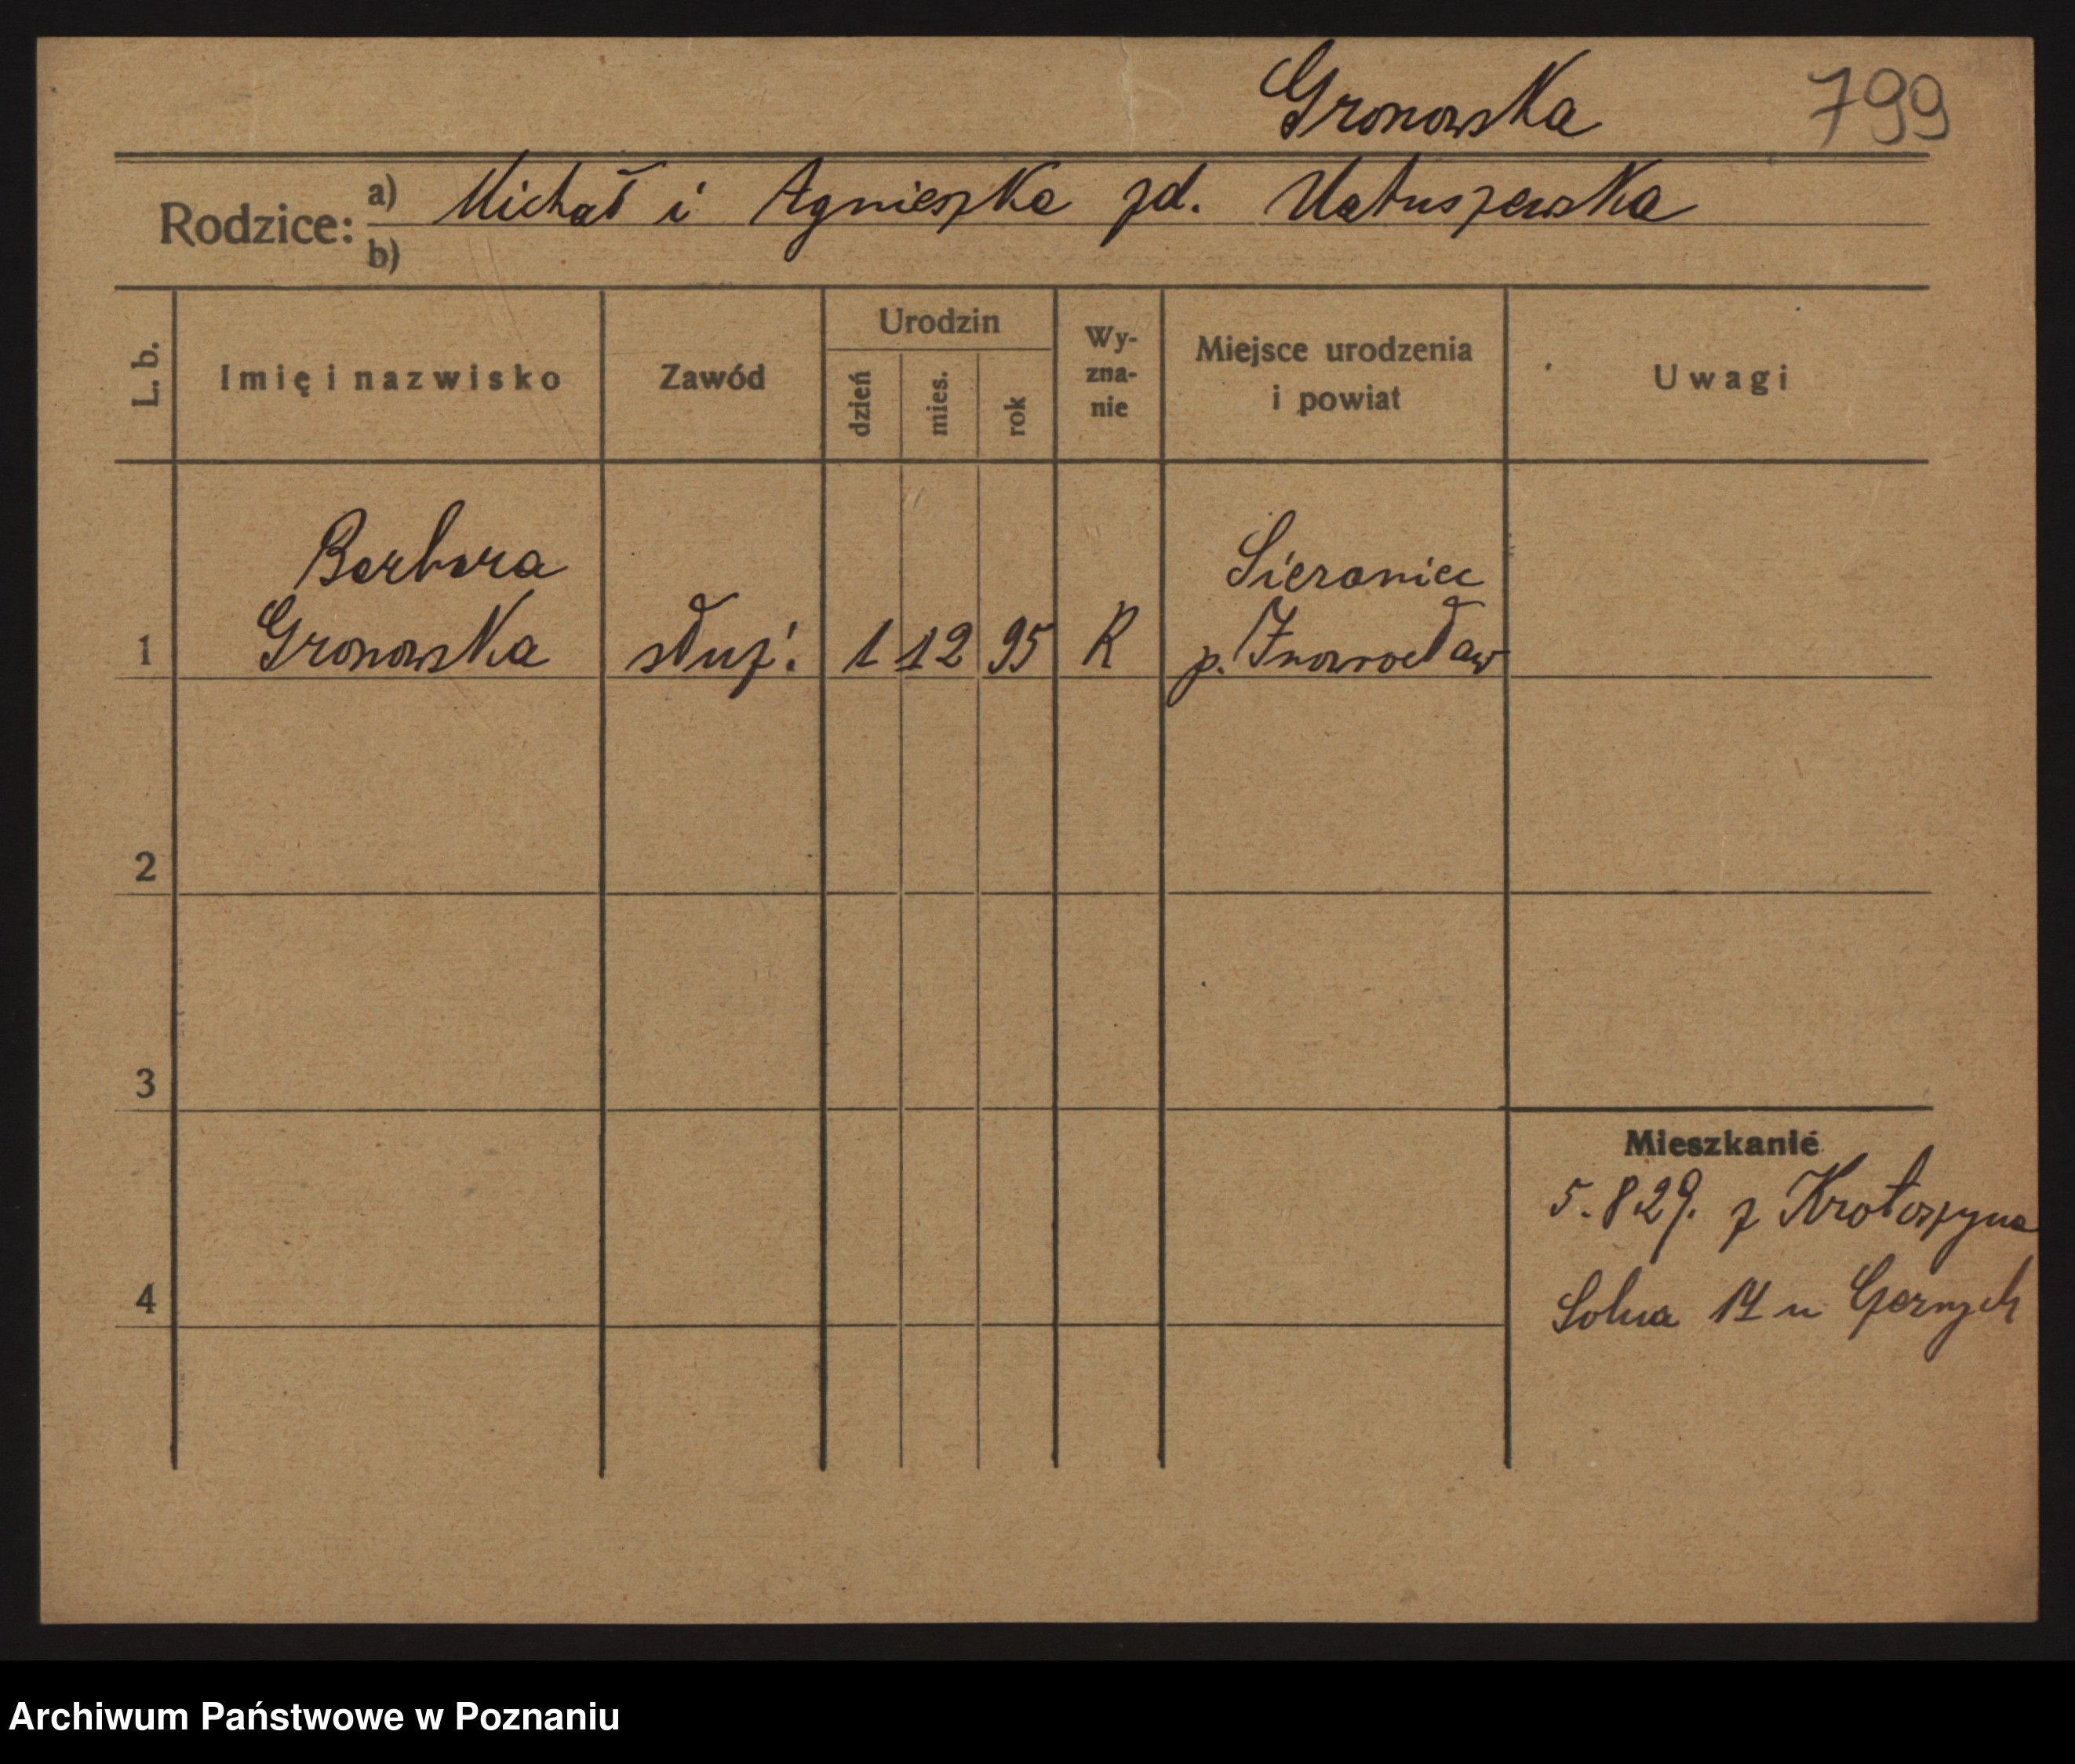 Gronowska 799
Rodzice: a) Michał i Agnieszka zd. Matuszewska
b)
L. b. Imię i nazwisko Zawód Urodzin dzień mies. rok Wy-zna-nie Miejsce urodzenia i powiat Uwagi
Barbara Sieraniec
1 Gronowska służ. 1 12 95 R p. Inowrocław
2
3
Mieszkanie
5.829. z Krotoszyna
4 Solna 14 u
Archiwum Państwowe w Poznaniu